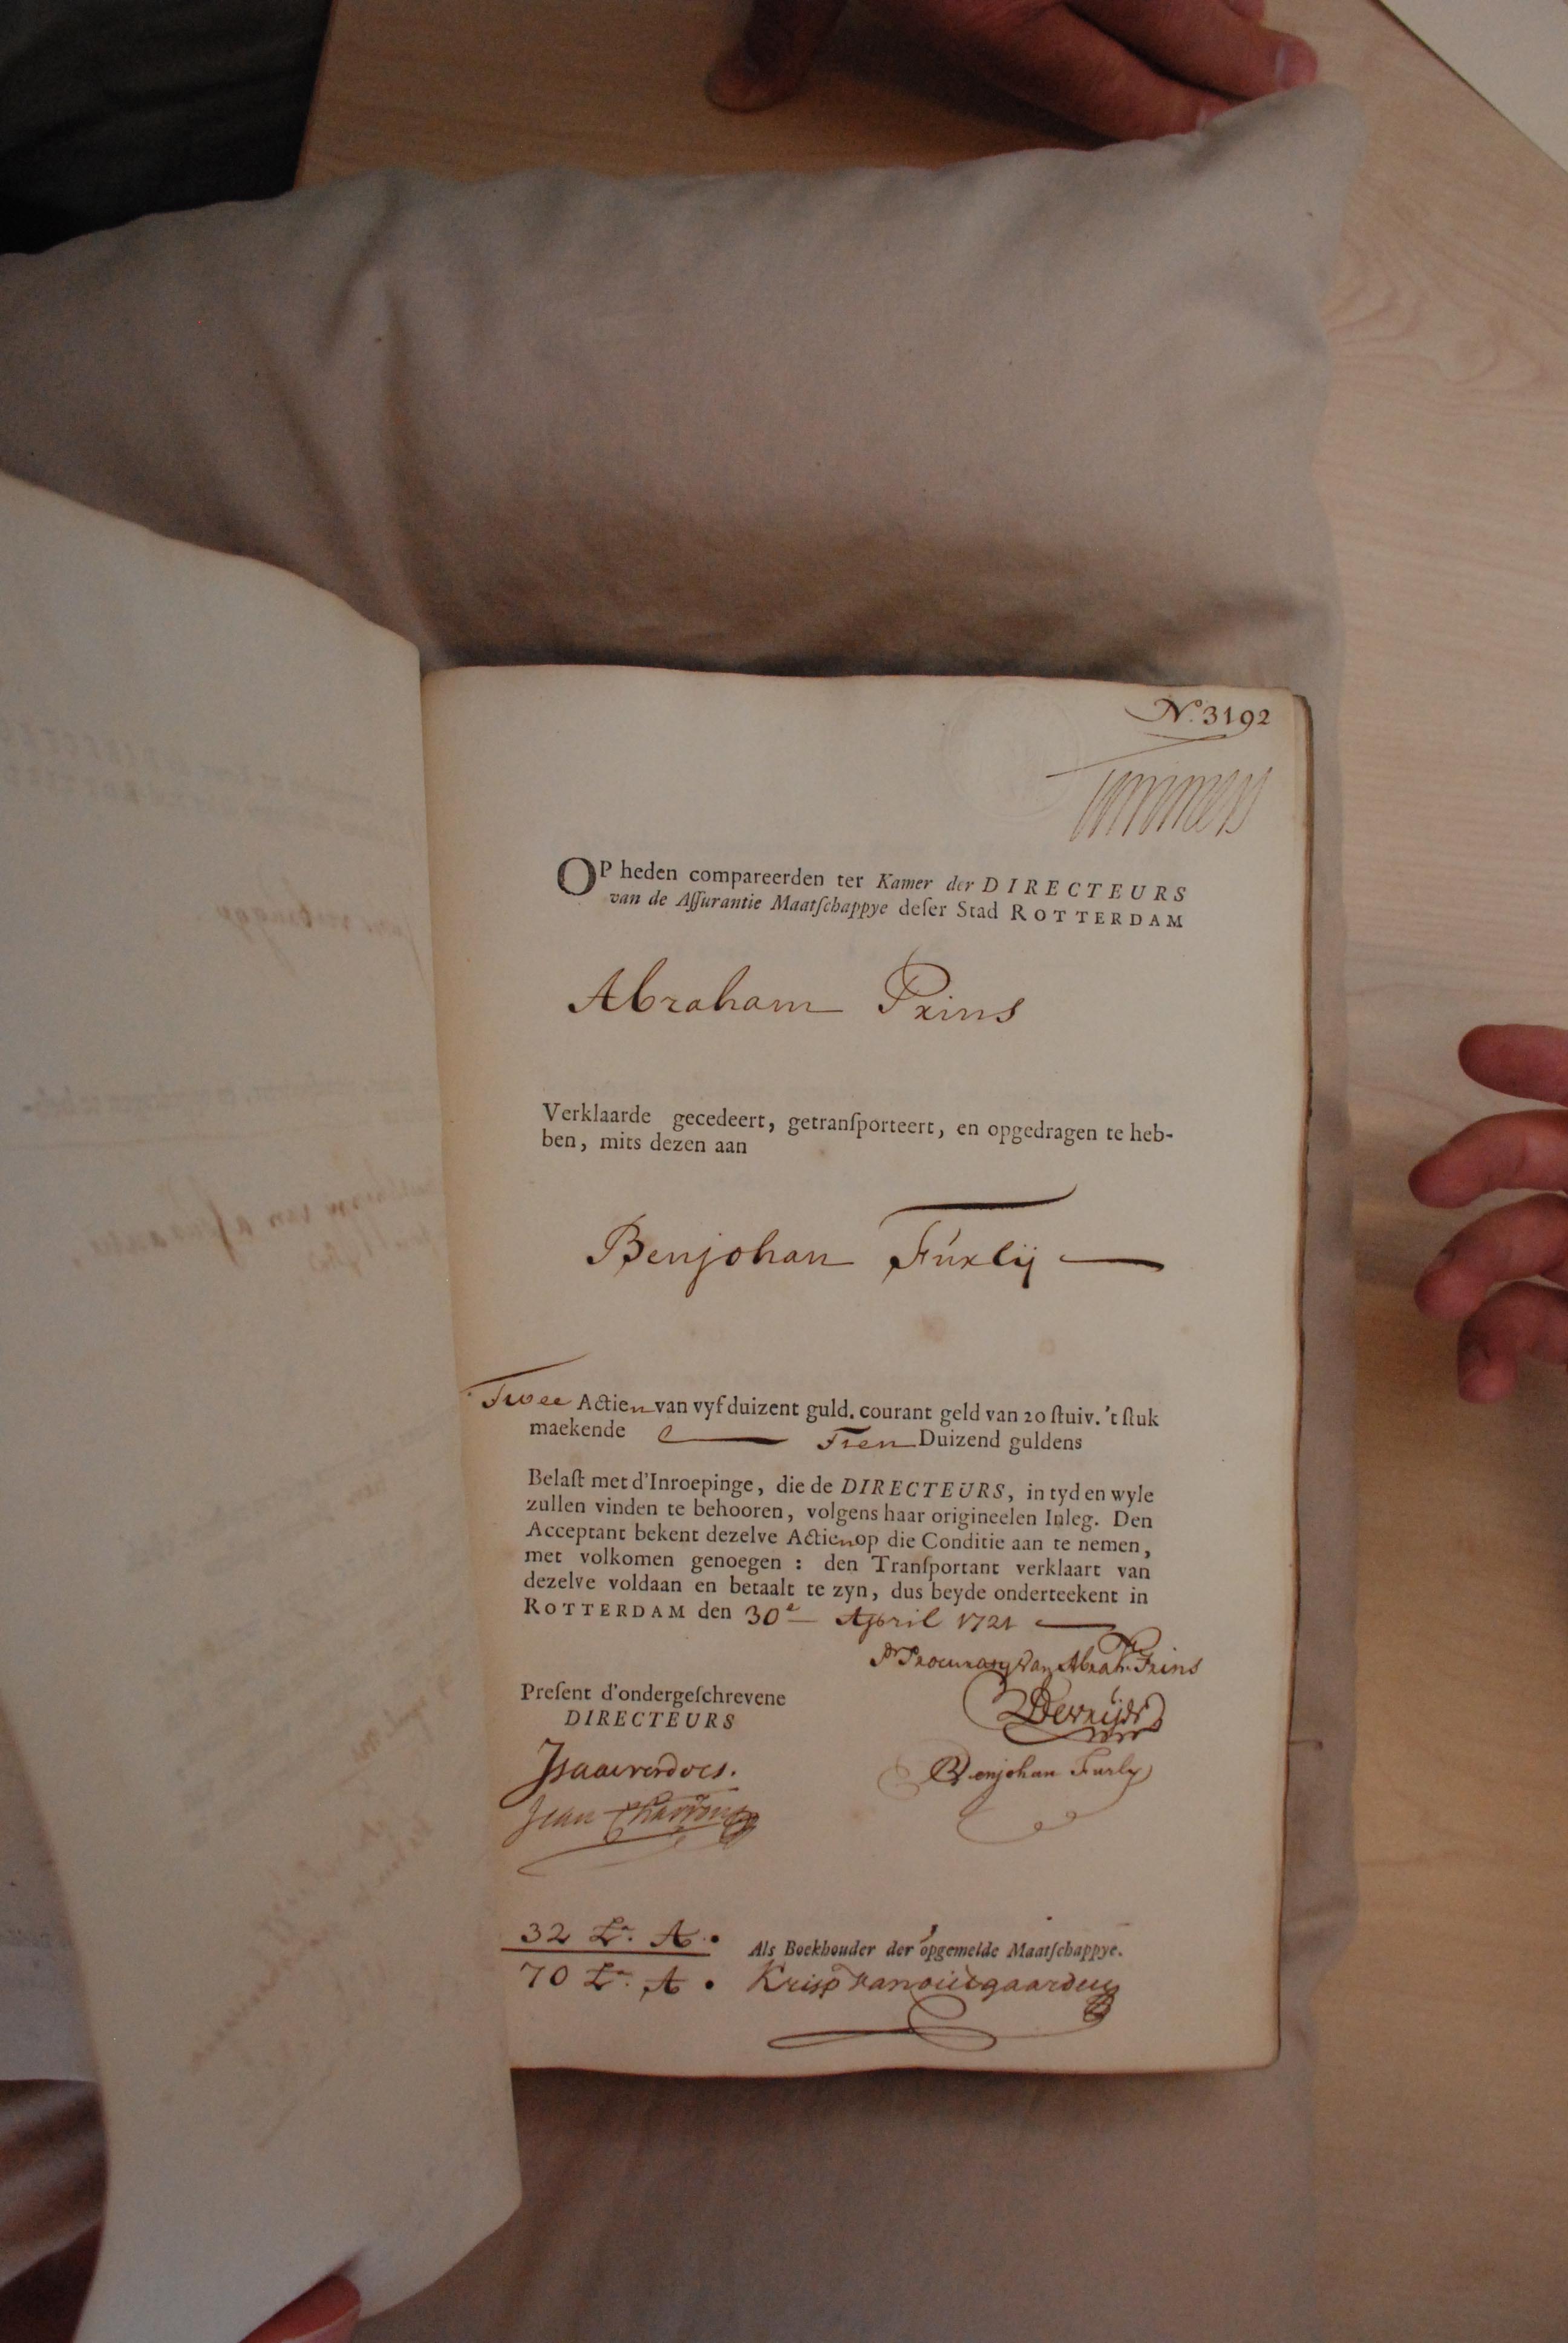 N.º 3192
OP heden compareerden ter Kamer der DIRECTEURS
van de Aſſurantie Maatſchappye deſer Stad ROTTERDAM
Abraham Prins
Verklaarde gecedeert, getranſporteert, en opgedragen te heb-
ben, mits dezen aan
Benjohan Fúrlij
Twee Actien van vyf duizent guld. courant geld van 20 ſtuiv. 't ſtuk
maekende Tien Duizend guldens
Belaſt met d'Inroepinge, die de DIRECTEURS, in tyd en wyle
zullen vinden te behooren, volgens haar origineelen Inleg. Den
Acceptant bekent dezelve Actien op die Conditie aan te nemen,
met volkomen genoegen : den Tranſportant verklaart van
dezelve voldaan en betaalt te zyn, dus beyde onderteekent in
ROTTERDAM den 30e April 1721
van Abrah: Prins
Preſent d'ondergeſchrevene
DIRECTEURS
Benjohan Furly
Jean
32 Lr. A.
70 Lr. A.
Als Boekhouder der opgemelde Maatſchappye.
Krisp van outgaarden